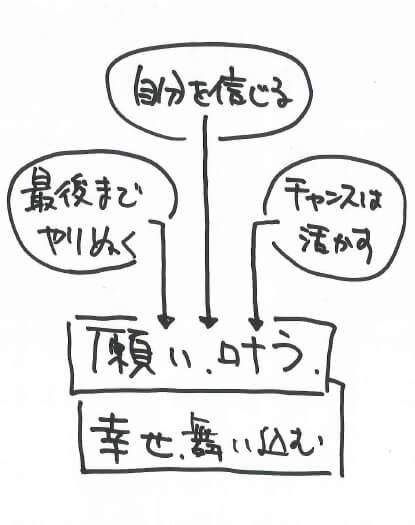 自分を信じる
最後まで
やりぬく
チャンスは
活かす
願い、叶う、
幸せ、舞い込む